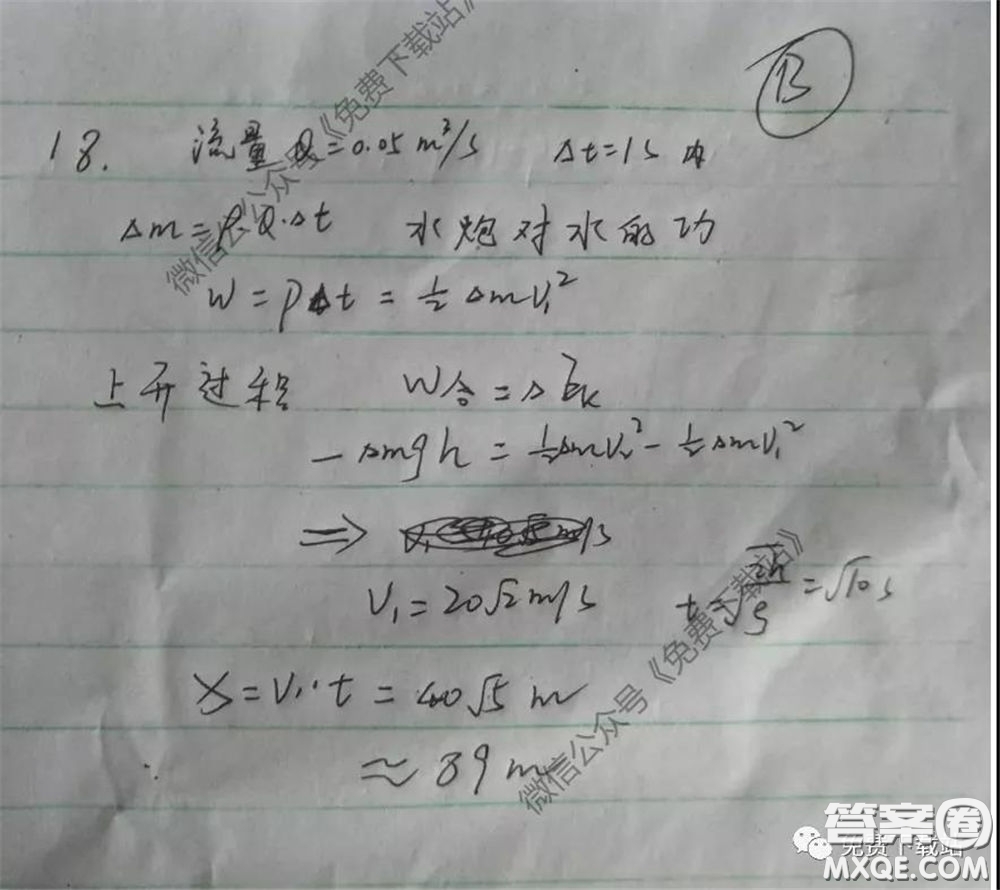 B
18. 流量 Q=0.05 m³/s Δt=1s 内
Δm=ρ·Q·Δt 水炮对水的功
W = PΔt = ½ΔmV₁²
上升过程 W合 = ΔEk
-Δmgh = ½ΔmV₂² - ½ΔmV₁²
⇒
V₁=20√2 m/s t=√(2h/g)=√10 s
X=V₁·t = 40√5 m
≈ 89 m
微信公众号《免费下载站》
微信公众号《免费下载站》
答案圈
免费下载站
MXQE.COM